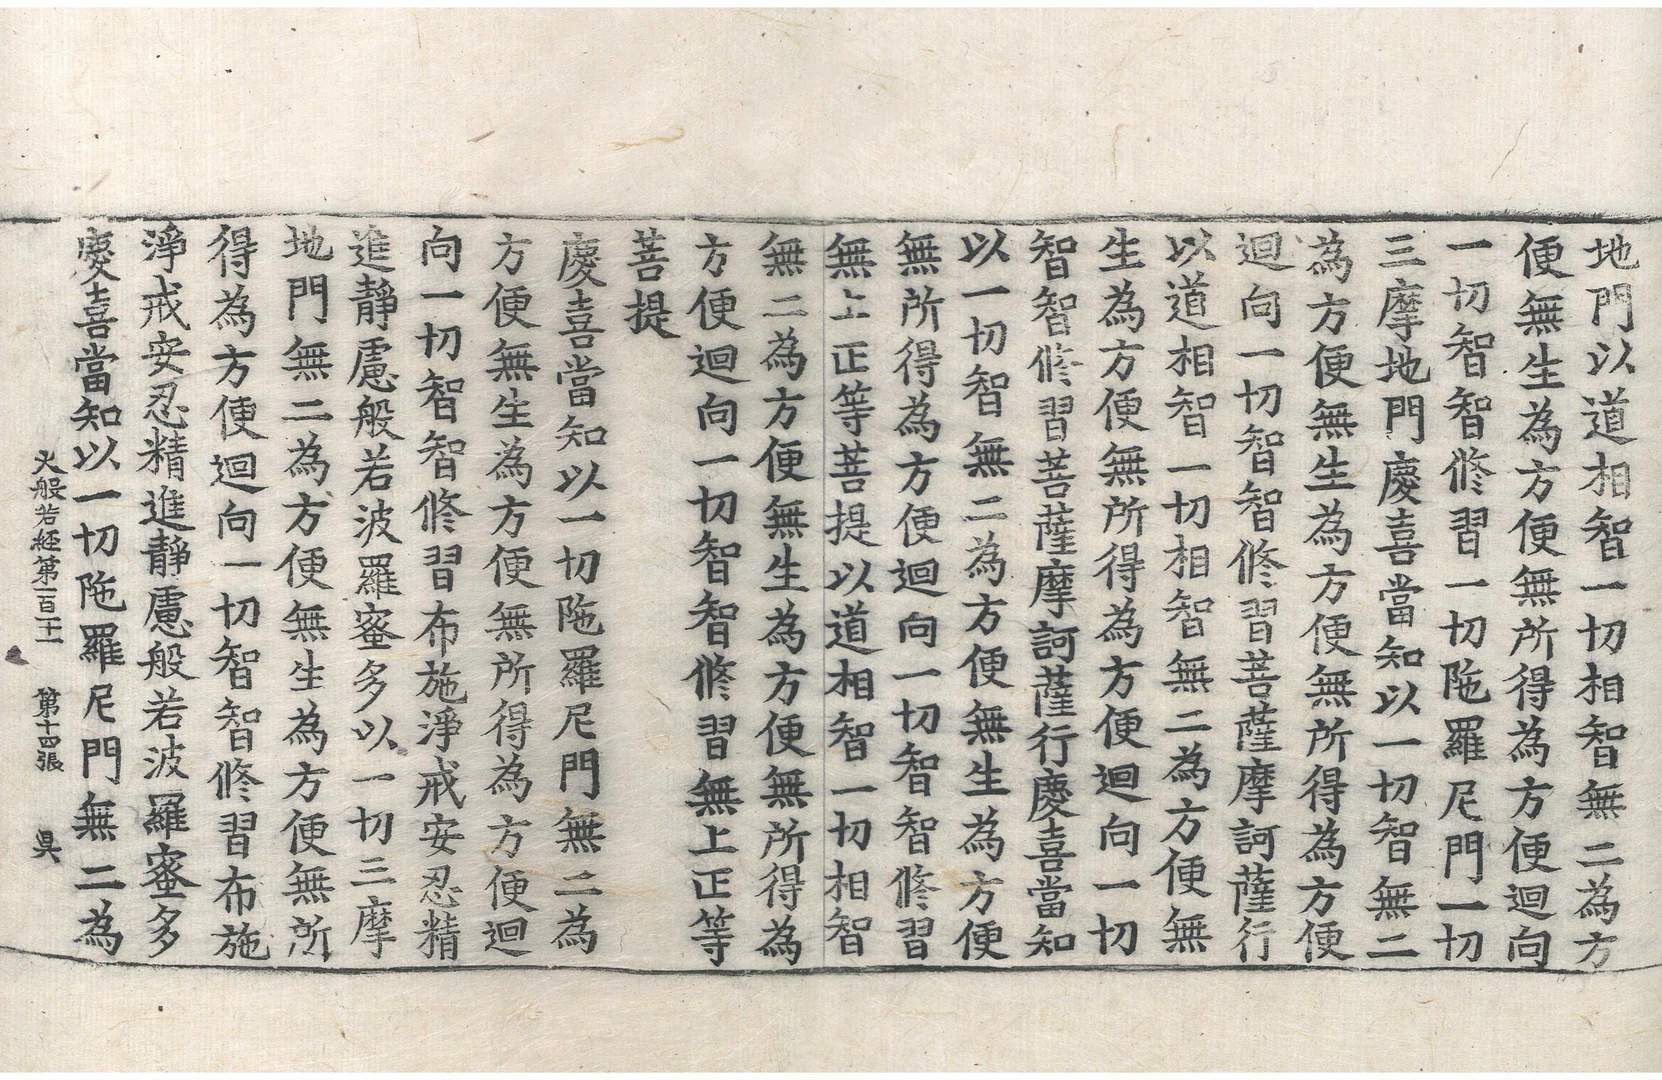 地門以道相智一切相智無二為方
便無生為方便無所得為方便迴向
一切智智修習一切陁羅尼門一切
三摩地門慶喜當知以一切智無二
為方便無生為方便無所得為方便
迴向一切智智修習菩薩摩訶薩行
以道相智一切相智無二為方便無
生為方便無所得為方便迴向一切
智智修習菩薩摩訶薩行慶喜當知
以一切智無二為方便無生為方便
無所得為方便迴向一切智智修習
無上正等菩提以道相智一切相智
無二為方便無生為方便無所得為
方便迴向一切智智修習無上正等
菩提
慶喜當知以一切陁羅尼門無二為
方便無生為方便無所得為方便迴
向一切智智修習布施淨戒安忍精
進靜慮般若波羅蜜多以一切三摩
地門無二為方便無生為方便無所
得為方便迴向一切智智修習布施
淨戒安忍精進靜慮般若波羅蜜多
慶喜當知以一切陁羅尼門無二為
大般若経第一百二十一 第十四張 昊